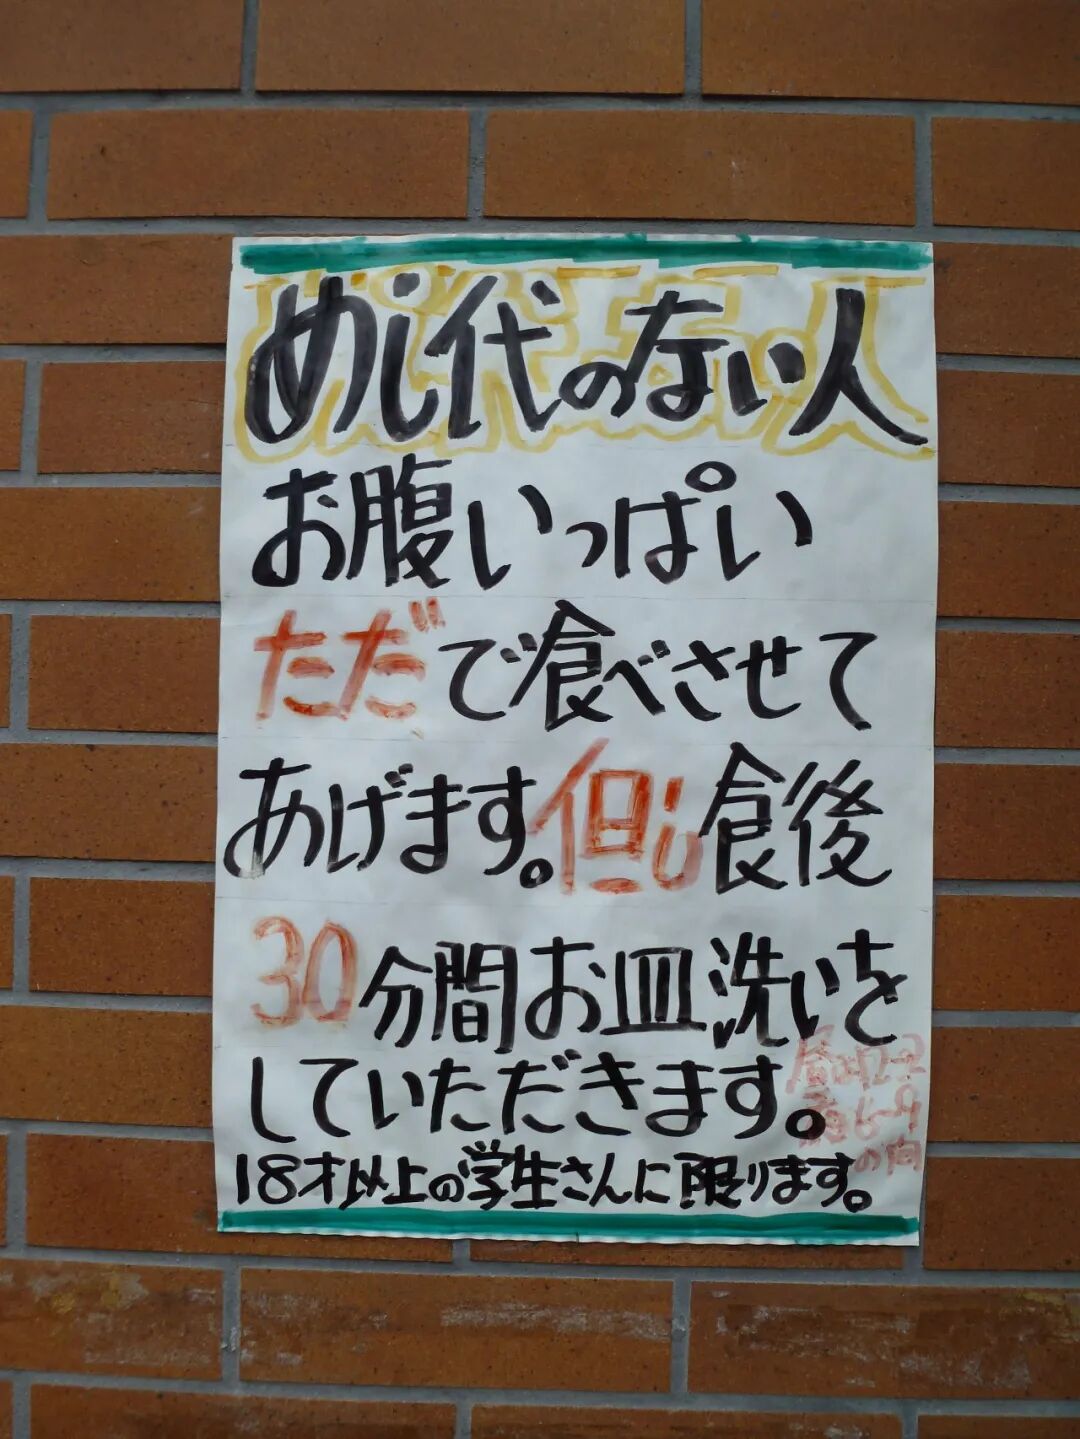 めし代のない人
お腹いっぱい
ただで食べさせて
あげます。但し食後
30分間お皿洗いを
していただきます。
昼は12-2
夜6-9
の間
18才以上の学生さんに限ります。